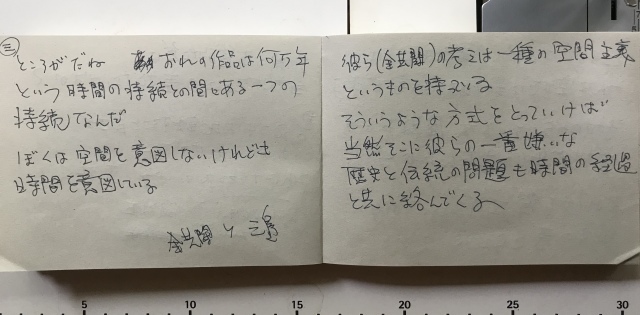 三
ところがだね おれの作品は何万年
という時間の持続との間にある一つの
持続なんだ
ぼくは空間を意図しないけれども
時間を意図している
全共闘 と 三島
彼ら(全共闘)の考えは一種の空間主義
というものを持っている
そういうような方式をとっていけば
当然そこに彼らの一番嫌いな
歴史と伝統の問題も時間の経過
と共に絡んでくる
5 10 15 20 25 30